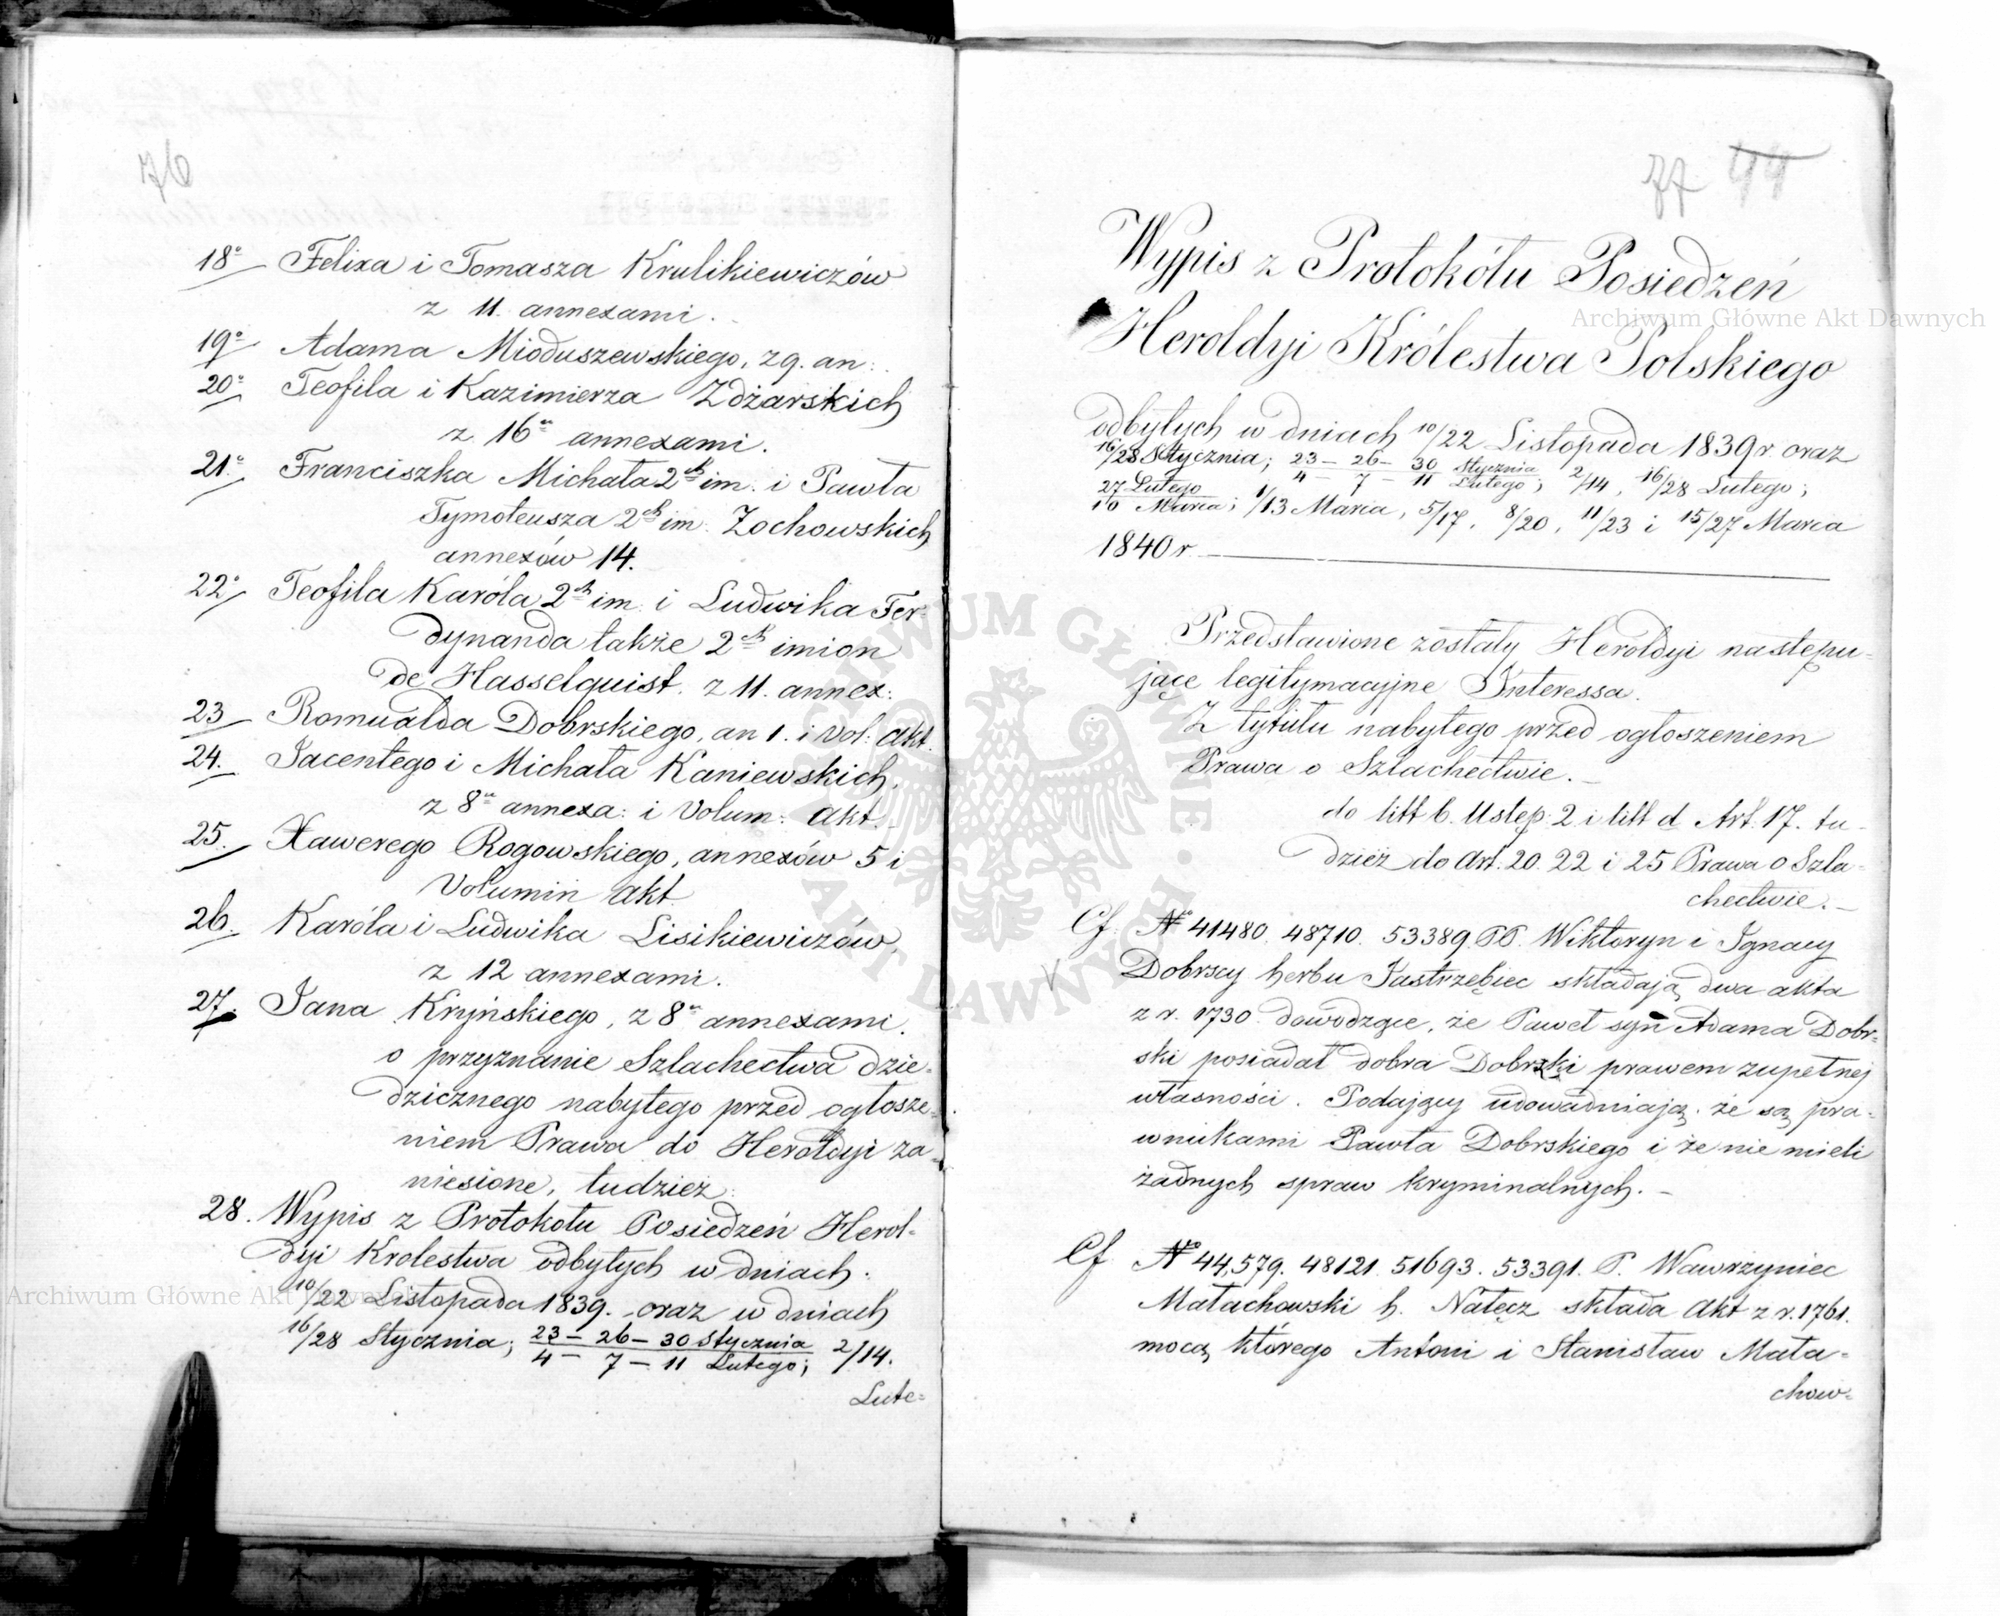 76
18° Felixa i Tomasza Krulikiewiczów
z 11. annexami.
19° Adama Mioduszewskiego, z 9. an:
20° Teofila i Kazimierza Zdżarskich
z 16u annexami.
21° Franciszka Michała 2ch im. i Pawła
Tymoteusza 2ch im. Żochowskich
annexów 14.
22° Teofila Karóla 2ch im. i Ludwika Fer-
dynanda także 2ch imion
de Hasselquist. z 11. annex:
23 Romualda Dobrskiego, an 1. i Vol: Akt.
24. Jacentego i Michała Kaniewskich,
z 8u annexa: i Volum: Akt.
25. Xawerego Rogowskiego, annexów 5 i
Volumin Akt
26. Karóla i Ludwika Lisikiewiczów,
z 12 annexami.
27. Jana Kryńskiego, z 8u annexami.
o przyznanie Szlachectwa dzie-
dzicznego nabytego przed ogłosze-
niem Prawa do Heroldyi za-
niesione, tudzież:
28. Wypis z Protokołu Posiedzeń Herol-
dyi Krolestwa odbytych w dniach:
10/22 Listopada 1839. oraz w dniach
16/28 Stycznia; 23 – 26 – 30 Stycznia / 4 – 7 – 11 Lutego; 2/14.
Lute-
77 44
Wypis z Protokółu Posiedzeń
Heroldyi Królestwa Polskiego
odbytych w dniach 10/22 Listopada 1839 r oraz
16/28 Stycznia; 23 – 26 – 30 Stycznia / 4 – 7 – 11 Lutego; 2/14, 16/28 Lutego;
27 Lutego / 10 Marca; 1/13 Marca, 5/17, 8/20, 11/23 i 15/27 Marca
1840 r.
Przedstawione zostały Heroldyi następu-
jące legitymacyjne Interessa.
Z tytułu nabytego przed ogłoszeniem
Prawa o Szlachectwie.
do litt b. Ustęp: 2 i litt d Art. 17. tu-
dzież do Art. 20. 22 i 25 Prawa o Szla-
chectwie.
Cf. No 41480. 48710. 53389. PP. Wiktoryn i Ignacy
Dobrscy herbu Jastrzębiec składają dwa akta
z r. 1730. dowodzące, że Paweł syn Adama Dobr-
ski posiadał dobra Dobrzki prawem zupełnej
własności. Podający udowadniają, że są pra-
wnukami Pawła Dobrskiego i że nie mieli
żadnych spraw kryminalnych.
Cf No 44,579. 48121. 51693. 53391. P. Wawrzyniec
Małachowski h. Nałęcz składa Akt z r. 1761.
mocą którego Antoni i Stanisław Mała-
chow-
Archiwum Główne Akt Dawnych
Archiwum Główne Akt Dawnych
ARCHIWUM GŁÓWNE AKT DAWNYCH